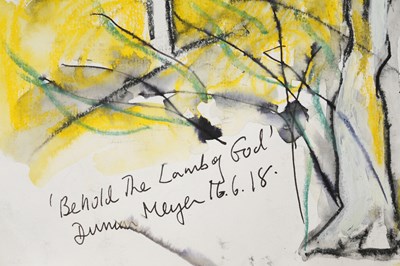 'Behold The Lamb of God'
Duncan Meyer 16.6.18.